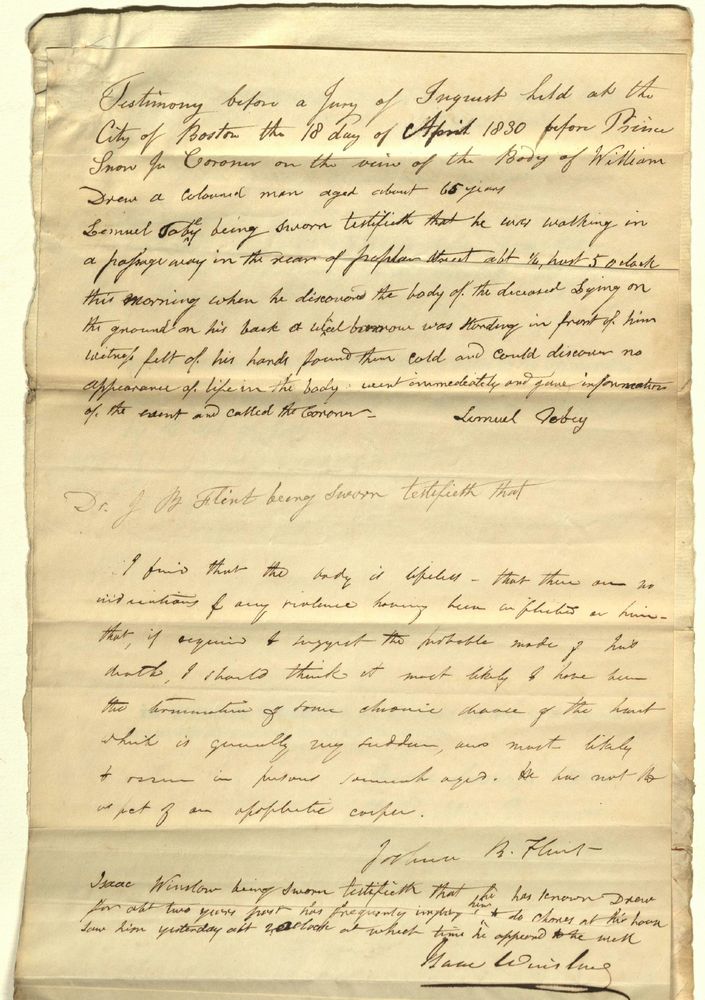 Testimony before a Jury of Inquest held at the
City of Boston the 18 day of April 1830 before Prince
Snow Jr Coroner on the view of the Body of William
Drew a coloured man aged about 65 years
Lemuel Tobey being sworn testifieth that he was walking in
a passage way in the rear of Poplar street abt ½ past 5 oclock
this morning when he discovered the body of the deceased Lying on
the ground on his back a wheel barrow was standing in front of him
witness felt of his hands found them cold and could discover no
appearance of life in the body went immediately and gave information
of the event and called the Coroner
Lemuel Tobey
Dr. J B Flint being sworn testifieth that
I find that the body is lifeless - that there are no
indications of any violence having been inflicted on him -
that, if required to suggest the probable mode of his
death, I should think it most likely to have been
the termination of some chronic disease of the heart
which is generally very sudden, and most likely
to occur in persons somewhat aged. He has not the
aspect of an apoplectic corpse.
Joshua B. Flint
Isaac Winslow being sworn testifieth that he has known Drew
for abt two years past has frequently employ him to do chores at his house
saw him yesterday abt 2 oclock at which time he appeard to be well
Isaac Winslow